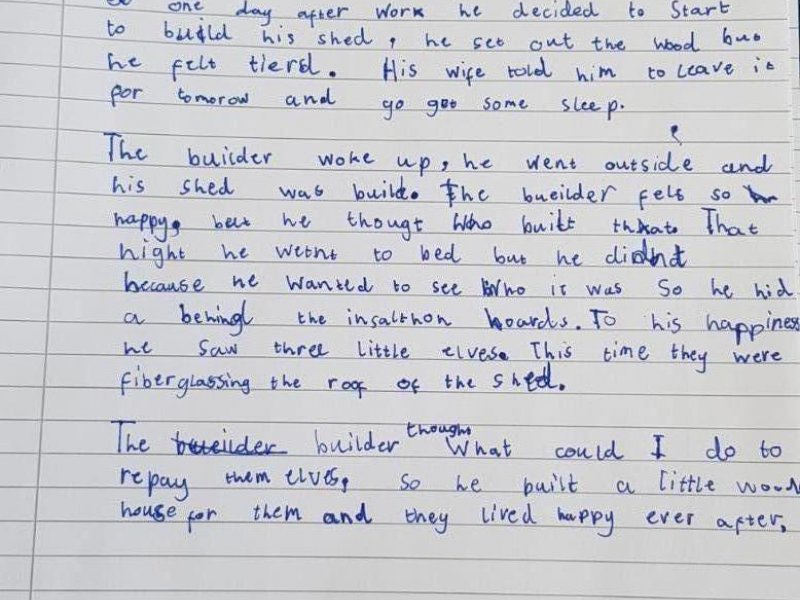 one day after work he decided to start
to build his shed, he set out the wood but
he felt tierd. His wife told him to leave it
for tomorow and go get some sleep.
The builder woke up, he went outside and
his shed was build. The bueilder felt so
happy, but he thougt who built that. That
night he wetnt to bed but he didnt
because he wanted to see who it was So he hid
a behingl the insalthon boards. To his happiness
he saw three little elves. This time they were
fiberglassing the roof of the shed.
The builder thought What could I do to
repay them elves, so he built a little wood
house for them and they lived happy ever after.